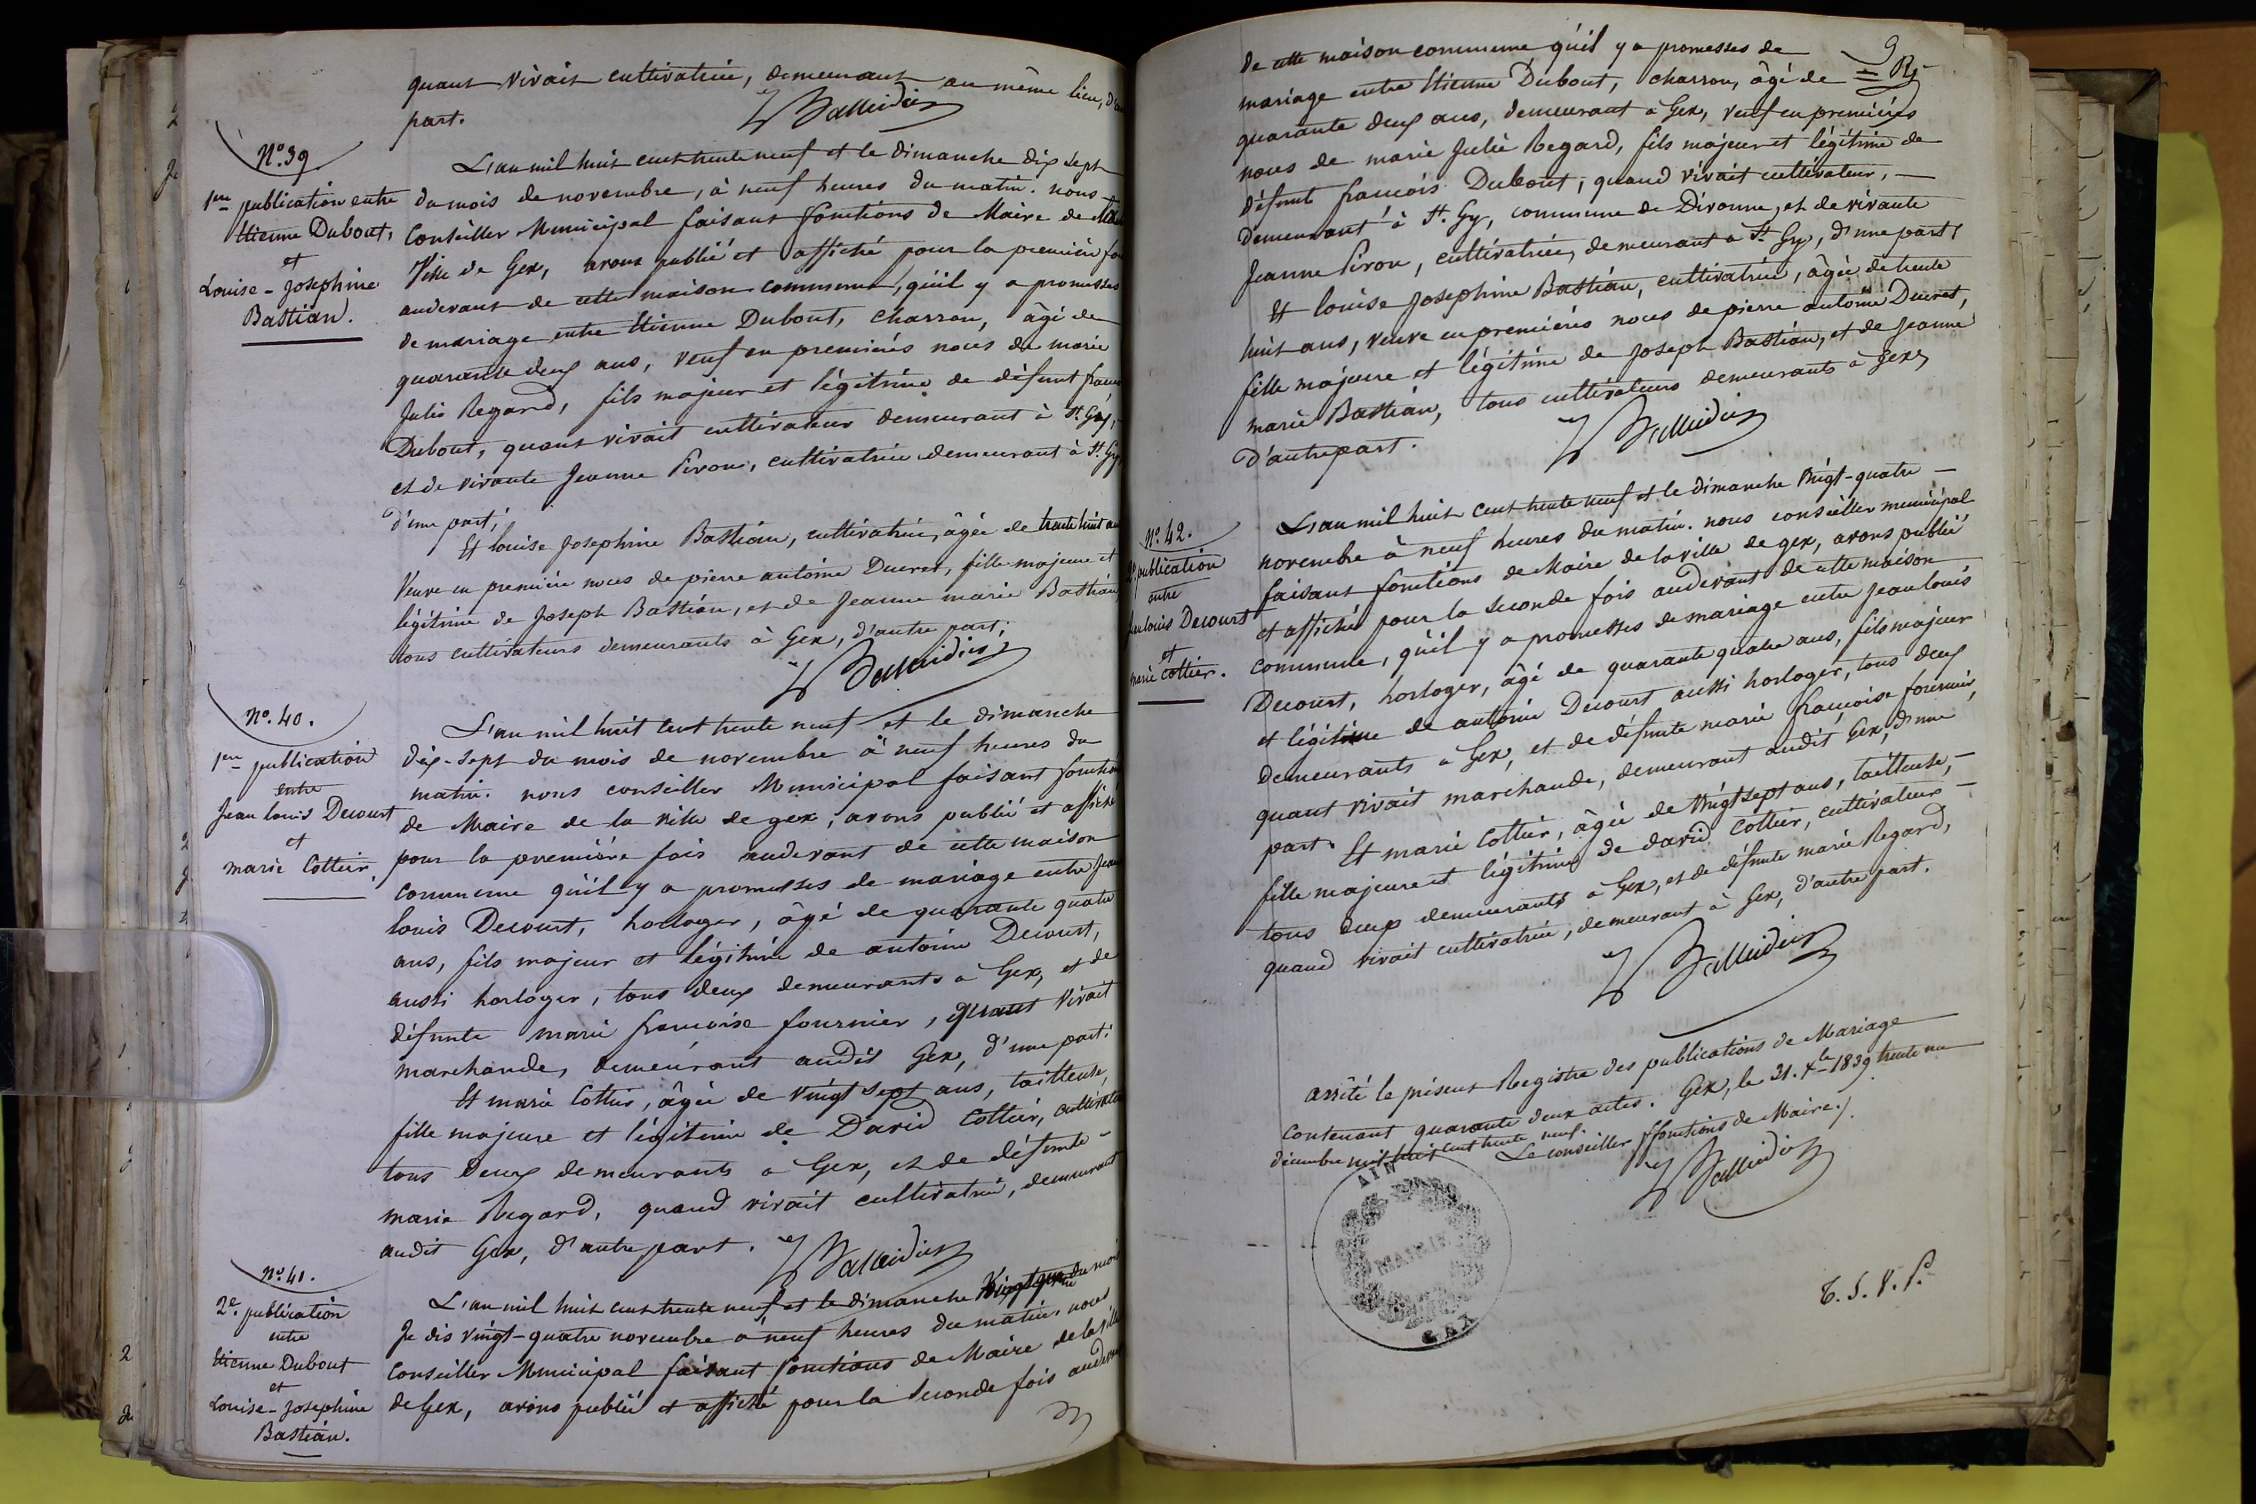 quant vivait cultivatrice, demeurant au même lieu, d'une
part.
N°. 39
1re publication entre
Etienne Dubout,
et
Louise-Josephine
Bastian.
L'an mil huit cent trente neuf et le dimanche dix sept
du mois de novembre, à neuf heures du matin. nous
Conseiller Municipal faisant fonctions de Maire de
Ville de Gex, avons publié et affiché pour la première fois
audevant de cette maison commune, qu'il y a promesses
de mariage entre Etienne Dubout, charron, âgé de
quarante deux ans, veuf en premières noces de marie
Julie Regard, fils majeur et légitime de défunt françois
Dubout, quant vivait cultivateur demeurant à St. Gy,
et de vivante Jeanne Piron, cultivatrice demeurant à St. Gy,
d'une part;
Et louise Josephine Bastian, cultivatrice, âgée de trente huit ans
Veuve en première noces de pierre antoine Ducret, fille majeure et
légitime de Joseph Bastian, et de Jeanne marie Bastian,
tous cultivateurs demeurants à Gex, d'autre part;
N°. 40.
1re publication
entre
Jean louis Decourt
et
marie Cottier.
L'an mil huit cent trente neuf et le dimanche
dix-sept du mois de novembre à neuf heures du
matin. nous conseiller Municipal faisant fonctions
de Maire de la ville de gex, avons publié et affiché
pour la première fois audevant de cette maison
commune qu'il y a promesses de mariage entre Jean
louis Decourt, horloger, âgé de quarante quatre
ans, fils majeur et légitime de antoine Decourt,
aussi horloger, tous deux demeurants à Gex, et de
défunte marie françoise fournier, quant vivait
marchande, demeurant audit Gex, d'une part:
Et marie Cottier, âgée de vingt sept ans, tailleuse,
fille majeure et légitime de David Cottier, cultivateur
tous deux demeurants à Gex, et de défunte -
marie Regard, quand vivait cultivatrice, demeurant
audit Gex, d'autre part.
N°. 41.
2e. publication
entre
Etienne Dubout
et
Louise-Josephine
Bastian.
L'an mil huit cent trente neuf et le dimanche du mois
Je dis vingt-quatre novembre à neuf heures du matin. nous
Conseiller Municipal faisant fonctions de Maire de la ville
de Gex, avons publié et affiché pour la seconde fois audevant
9
de cette maison commune qu'il y a promesses de
mariage entre Etienne Dubout, charron, âgé de
quarante deux ans, demeurant à Gex, veuf en premières
noces de marie Julie Regard, fils majeur et légitime de
défunt françois Dubout, quand vivait cultivateur, -
demeurant à St. Gy, commune de Divonne, et de vivante
Jeanne Piron, cultivatrice, demeurant à St. Gy, d'une part;
Et louise Josephine Bastian, cultivatrice, âgée de trente
huit ans, veuve en premières noces de pierre antoine Ducret,
fille majeure et légitime de Joseph Bastian, et de Jeanne
marie Bastian, tous cultivateurs demeurants à Gex,
d'autre part.
N°. 42.
2e publication
entre
Jean louis Decourt
et
marie Cottier.
L'an mil huit cent trente neuf et le dimanche vingt-quatre -
novembre à neuf heures du matin. nous conseiller municipal
faisant fonctions de Maire de la ville de gex, avons publié
et affiché pour la seconde fois audevant de cette maison
commune, qu'il y a promesses de mariage entre Jean louis
Decourt, horloger, âgé de quarante quatre ans, fils majeur
et légitime de antoine Decourt aussi horloger, tous deux
demeurants à Gex, et de défunte marie françoise fournier,
quant vivait marchande, demeurant audit Gex, d'une
part. Et marie Cottier, âgée de vingt sept ans, tailleuse, -
fille majeure et légitime de david Cottier, cultivateur -
tous deux demeurants à Gex, et de défunte marie Regard,
quand vivait cultivatrice, demeurant à Gex, d'autre part.
arrêté le présent Registre des publications de Mariage
contenant quarante deux actes. Gex, le 31. Xbre 1839 trente un
décembre mil huit cent trente neuf.
Le conseiller ffonctions de Maire./.
AIN
MAIRIE
GEX
T. S. V. P.